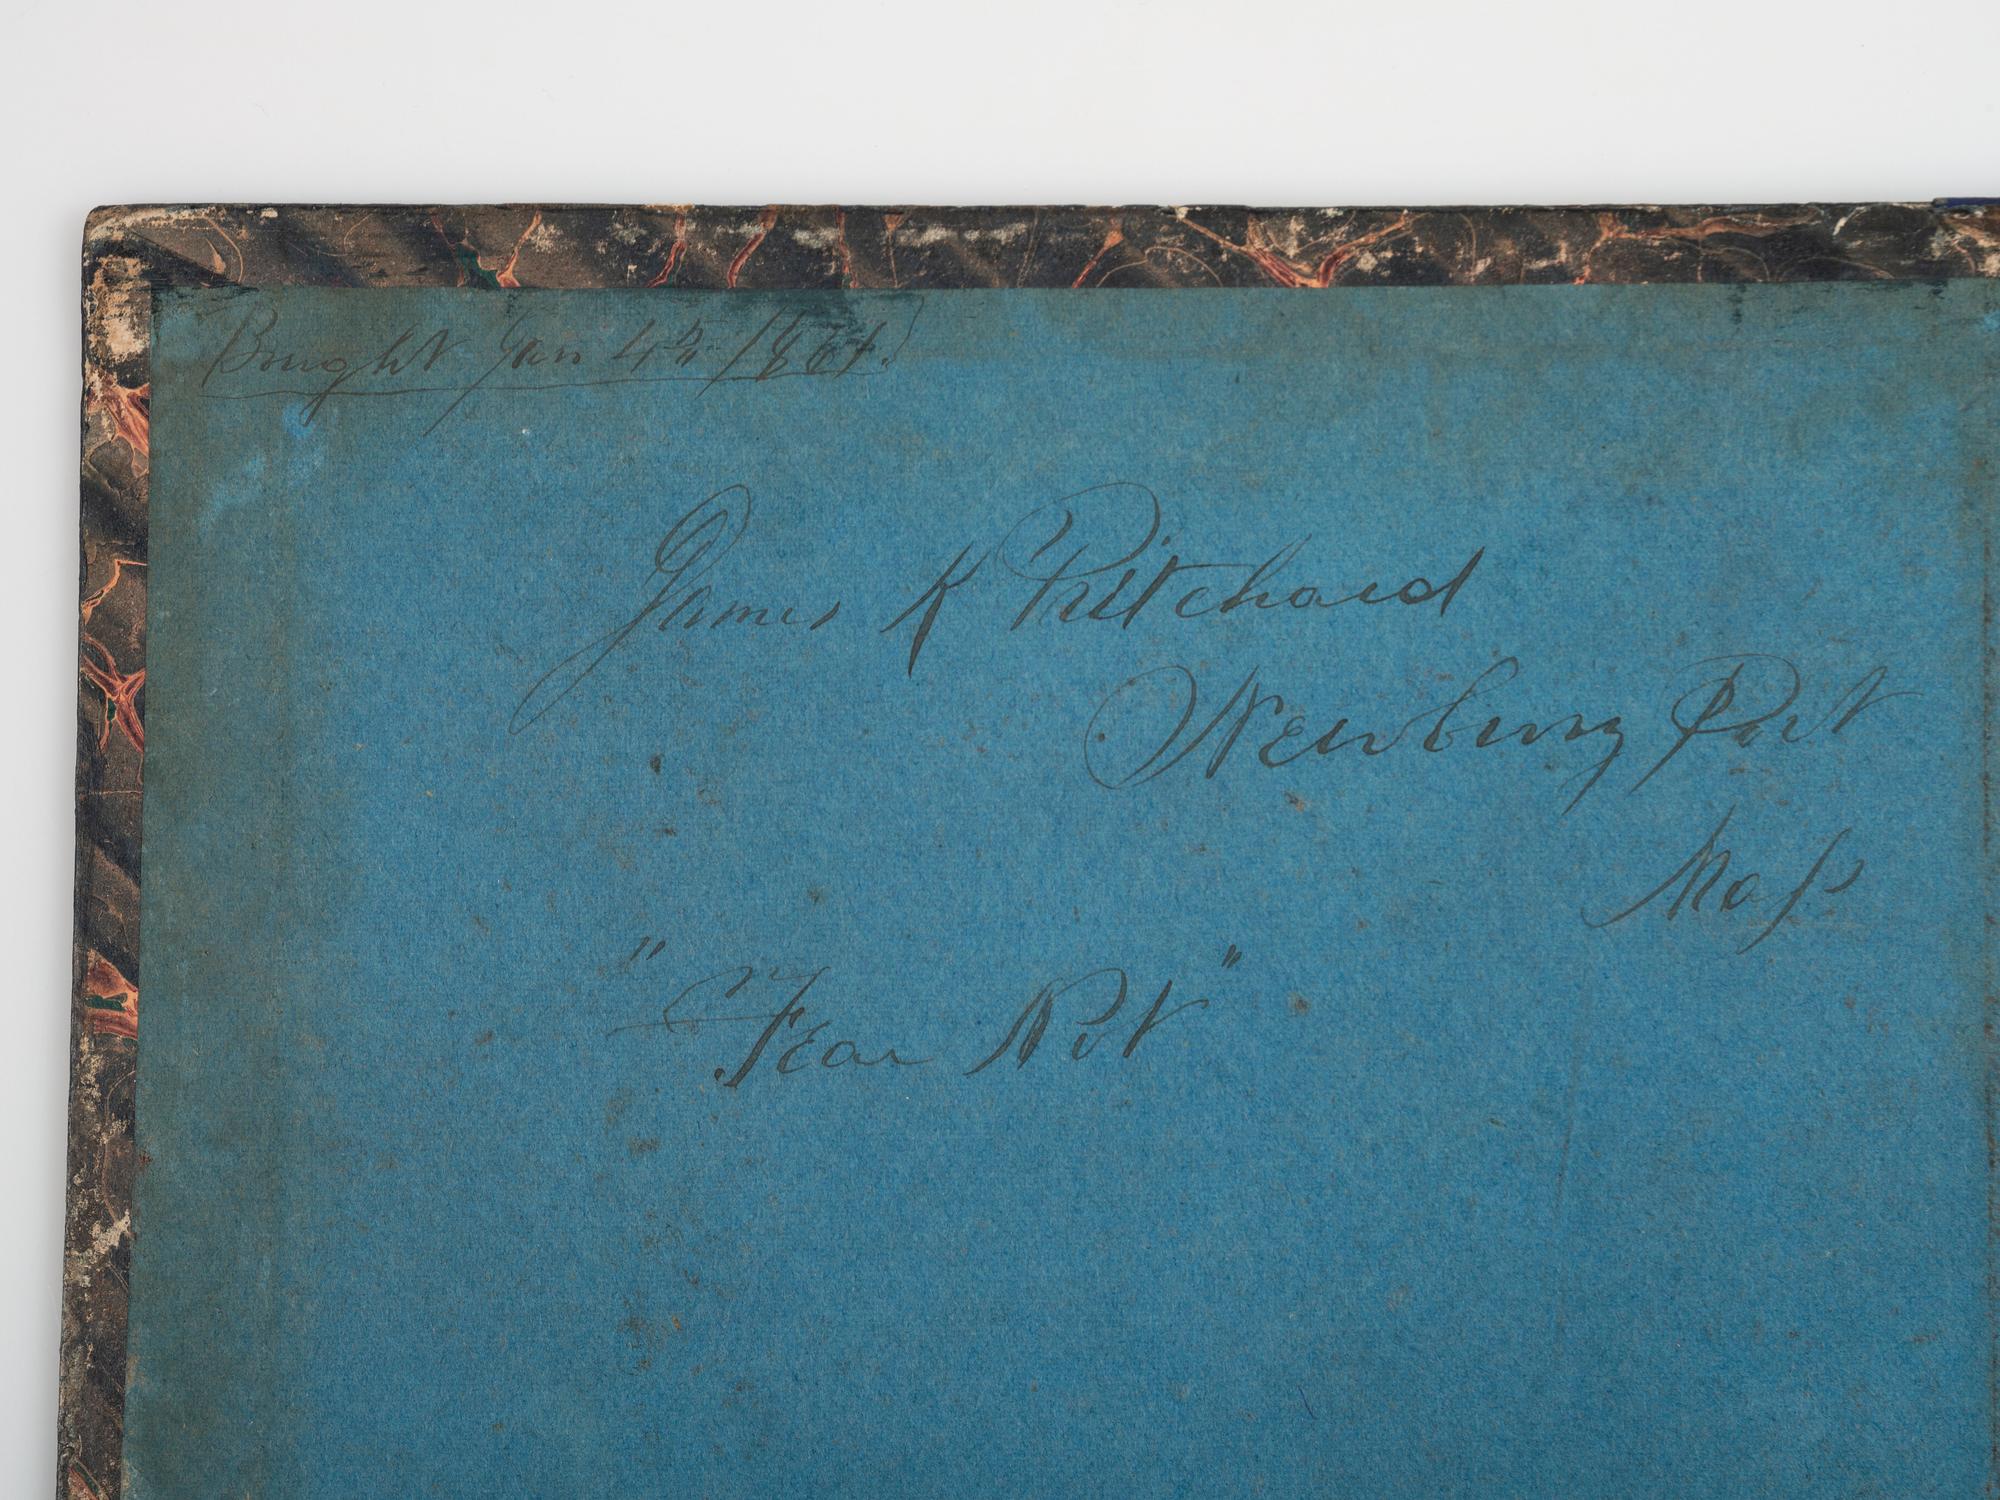 Bought Jan 4th 1864.
James K Pritchard
Newbury Port
Mass
"Fear Not"